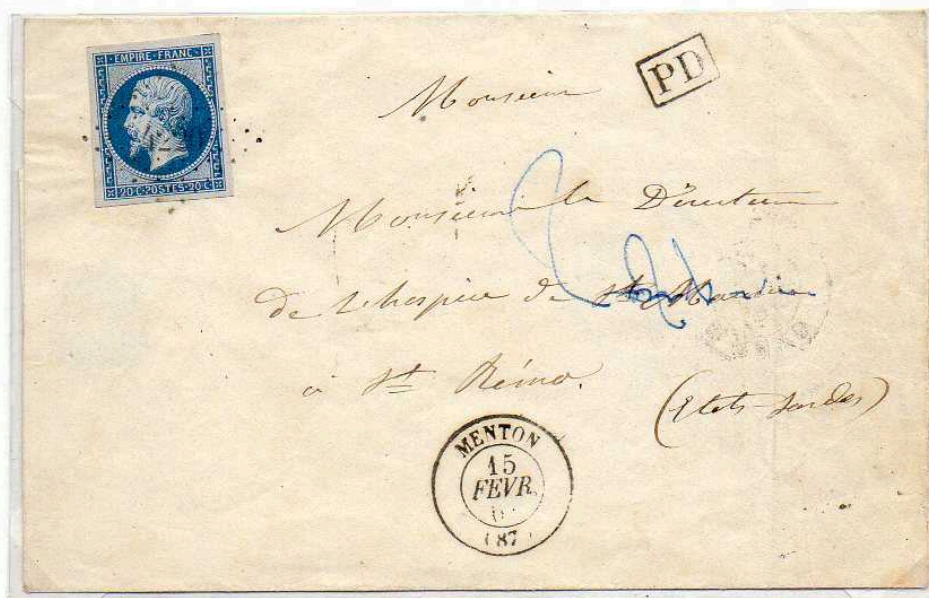 EMPIRE·FRANC·
20C·POSTES·20C·
PD
Monsieur
Monsieur le Directeur
de l'hospice de
à St Rémo.
(Etats Sardes)
MENTON
15
FEVR.
(87)